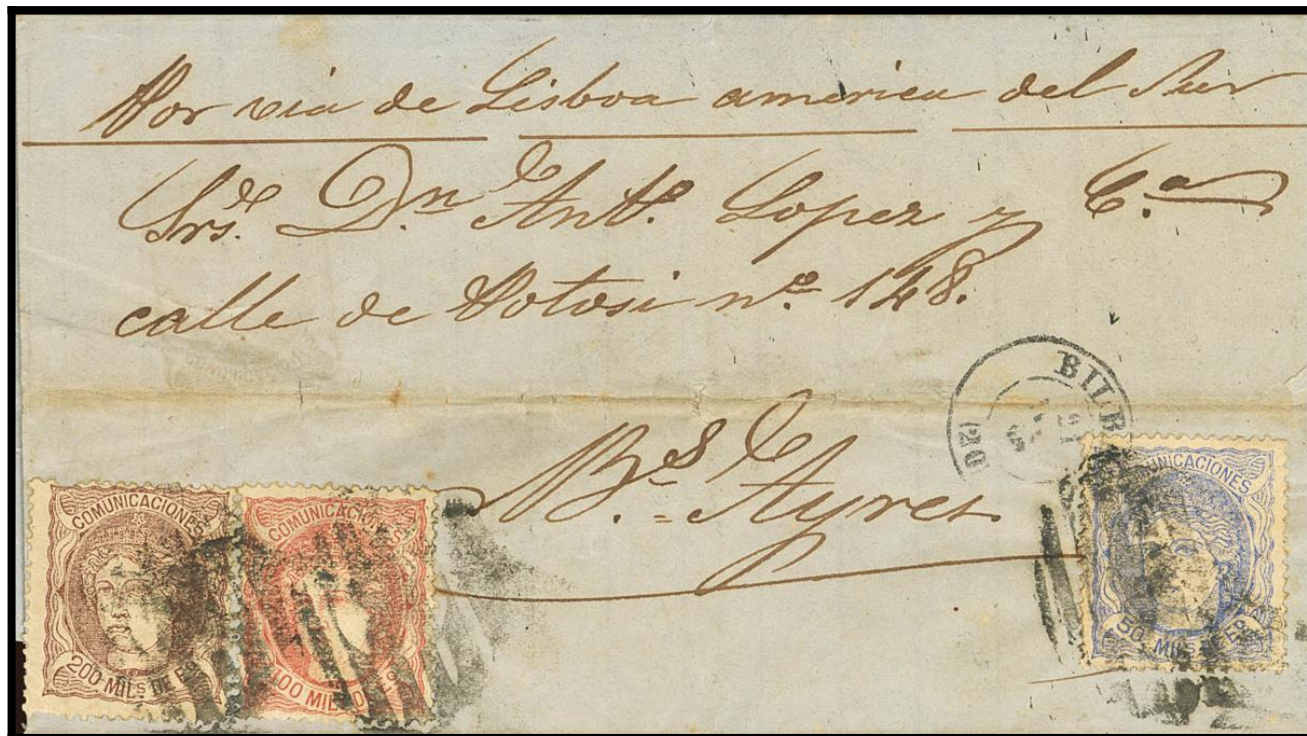 Por via de Lisboa america del Sur
Srs. Dn. Anto. Lopez y C.a
calle de Potosi no. 148.
BILB
Bs. Ayres
COMUNICACIONES
200 MILS. DE Eo
COMUNICACIONES
400 MILS. D
COMUNICACIONES
50 MILS. DE Eo